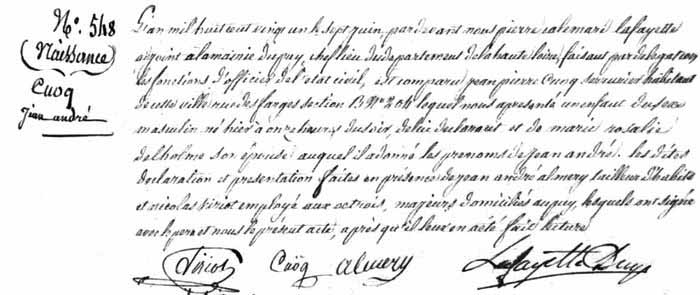 N°. 548
Naissance
Cuoq
jean andré
L'an mil huit cent vingt un le sept juin, pardevant nous pierre calemard lafayette
adjoint à la mairie du puy, chef lieu du departement de la haute loire, faisant par delegation
les fonctions d'officier de l'etat civil, est comparu jean pierre Cuoq serrurier habitant
de cette ville rue des farges section B N° 204 lequel nous a presenté un enfant du sexe
masculin né hier à onze heures du soir, de lui declarant et de marie rosalie
delholme son épouse auquel il a donné les prenoms de jean andré. les dites
declaration et presentation faites en presence de jean andré almery tailleur d'habits
et nicolas viriot employé aux octrois, majeurs domiciliés au puy, lesquels ont signé
avec le pere et nous le présent acte, après qu'il leur en a été fait lecture
Viriot Cuoq almery Lafayette